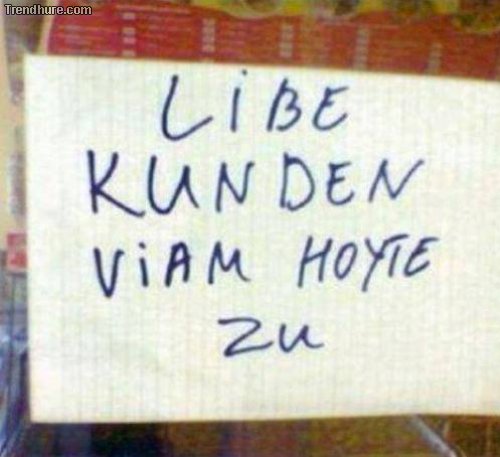 Trendhure.com
LiBE
KUNDEN
ViAM HOYTE
ZU